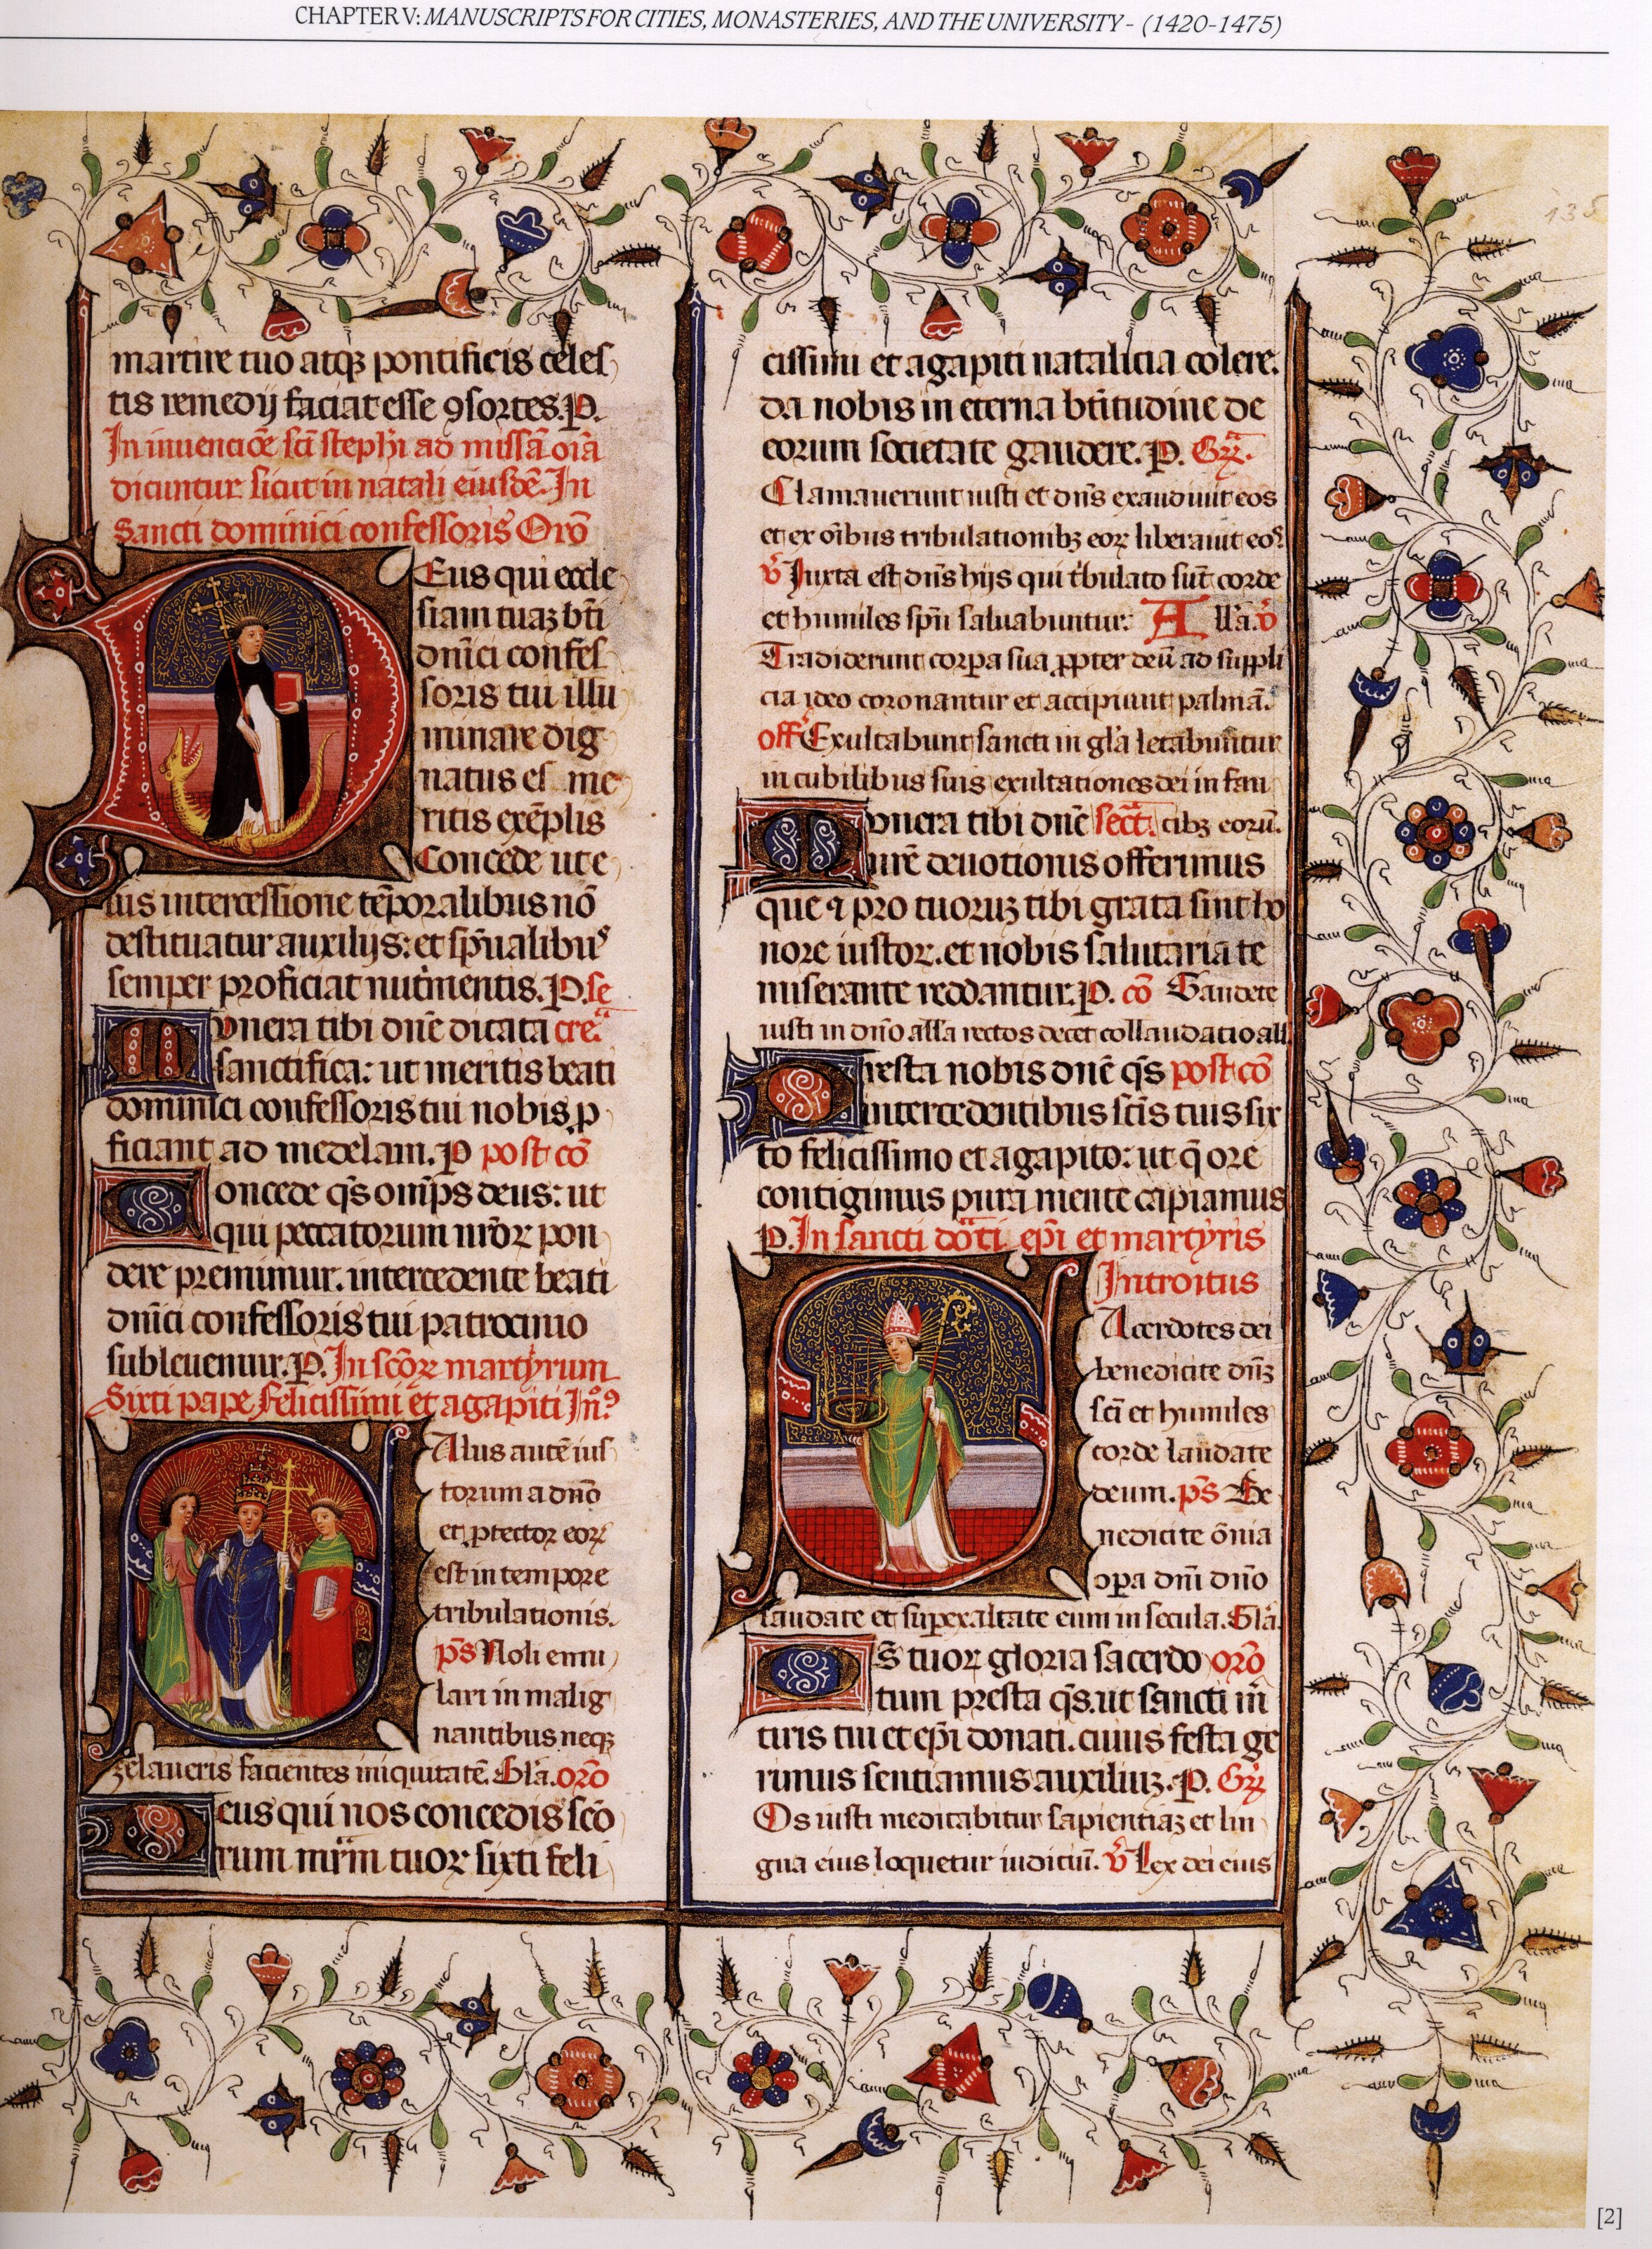 CHAPTER V: MANUSCRIPTS FOR CITIES, MONASTERIES, AND THE UNIVERSITY - (1420-1475)
135
martire tuo atqꝫ pontificis celes
tis remedij faciat esse ꝯsortes. P.
In invencōe scī stephī ad missā orā
dicuntur sicut in natali eiusdē. In
Sancti dominici confessoris Orō
Deus qui eccle
siam tuaz btī
dnīci confes
soris tui illu
minare dig
natus es me
ritis exēplis
Concede ut e
ius intercessione tēporalibus nō
destituatur auxilijs: et spūalibus
semper proficiat nutmentis. P. se
Munera tibi dnē dicata creā
sanctifica: ut meritis beati
dominici confessoris tui nobis p
ficiant ad medelam. P post cō
Concede qs omps deus: ut
qui peccatorum nror pon
dere premimur. intercedente beati
dnīci confessoris tui patrocinio
sublevemur. P. In scōꝝ martyrum
Sixti pape felicissimi et agapiti Inº
Salus autē ius
torum a dnō
et ptector eoꝝ
est in tempore
tribulationis.
ps Noli emu
lari in malig
nantibus neqꝫ
zelaveris facientes iniquitatē. Glā. orō
Deus qui nos concedis scō
rum mrm tuoꝝ sixti feli
cissimi et agapiti natalicia colere.
da nobis in eterna btitudine de
eorum societate gaudere. P. Grꝫ.
Clamaverunt iusti et dns exaudivit eos
et ex oībus tribulationibꝫ eoꝝ liberavit eos
V Iuxta est dns hijs qui tbulato sūt corde
et humiles spū salvabuntur. Allā. V
Tradiderunt corpa sua ppter deū ad suppli
cia ideo coronantur et accipiunt palmā.
off Exultabunt sancti in glā letabuntur
in cubilibus suis exultationes dei in fau
Munera tibi dnē sect. cibꝫ eorū.
nrē devotionis offerimus
que ⁊ pro tuoruz tibi grata sint ho
nore iustoꝝ. et nobis salutaria te
miserante reddantur. P. cō Gaudete
iusti in dno allā rectos decet collaudatio all
Presta nobis dnē qs post cō
intercedentibus scīs tuis six
to felicissimo et agapito: ut q ore
contigimus pura mente capiamus
P. In sancti doti epī et martyris
Introitus
Sacerdotes dei
benedicite dnꝫ
scī et humiles
corde laudate
deum. ps Be
nedicite ōnia
opa dnī dnō
laudate et supexaltate eum in secula. Glā.
Ds tuoꝝ gloria sacerdo orō
tum presta qs. ut sancti m
tiris tui et epī donati. cuius festa ge
rimus sentiamus auxiliuz. P. Grꝫ
Os iusti meditabitur sapientiaꝫ et lin
gua eius loquetur iudiciū. V Lex dei eius
[2]